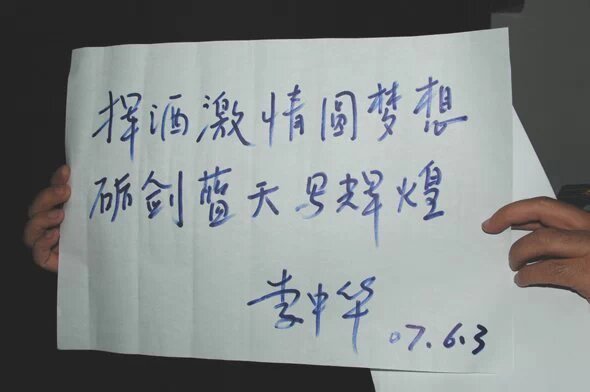 挥洒激情圆梦想
砺剑蓝天写辉煌
李中华 07.6.3